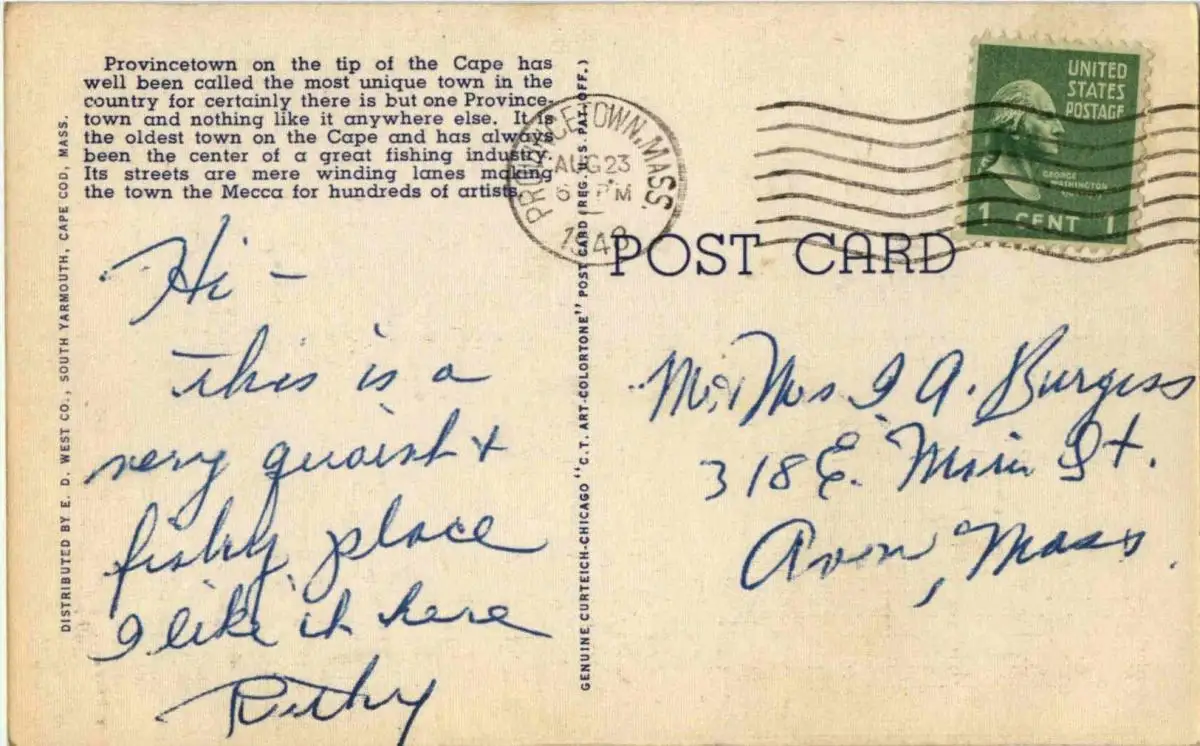 Provincetown on the tip of the Cape has
well been called the most unique town in the
country for certainly there is but one Province-
town and nothing like it anywhere else. It is
the oldest town on the Cape and has always
been the center of a great fishing industry.
Its streets are mere winding lanes making
the town the Mecca for hundreds of artists.
DISTRIBUTED BY E. D. WEST CO., SOUTH YARMOUTH, CAPE COD, MASS.
Hi –
this is a
very quaint +
fishy place
I like it here
GENUINE CURTEICH-CHICAGO "C. T. ART-COLORTONE" POST CARD (REG. U.S. PAT. OFF.)
PROVINCETOWN, MASS.
AUG 23
PM
POST CARD
UNITED
STATES
POSTAGE
GEORGE
WASHINGTON
1 CENT 1
Mr. Mrs I A. Burgess
318 E. Main St.
Avon, Mass.